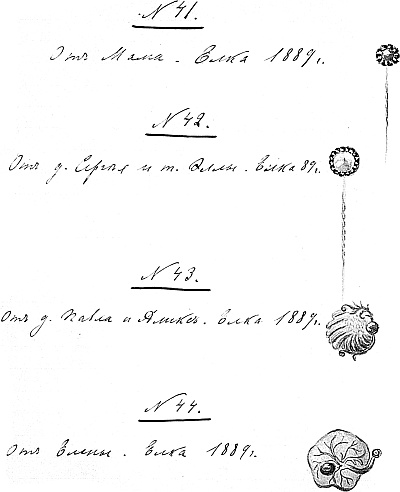 N 41.
Отъ Мама. Елка 1889 г.
N 42.
Отъ д. Сергѣя и т. Эллы. Елка 89 г.
N 43.
Отъ д. Павла и Аликсъ. Елка 1889 г.
N 44.
Отъ Елены. Елка 1889 г.